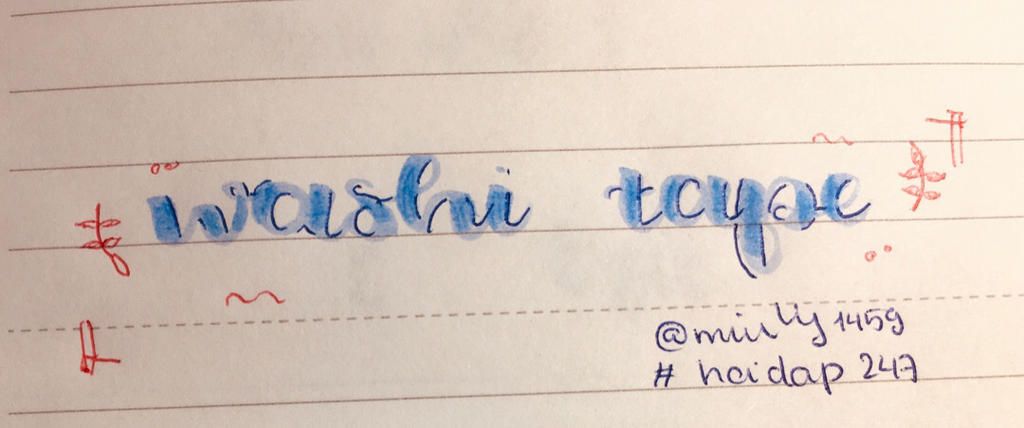 washi tape
@miulty1459
# hoidap 247